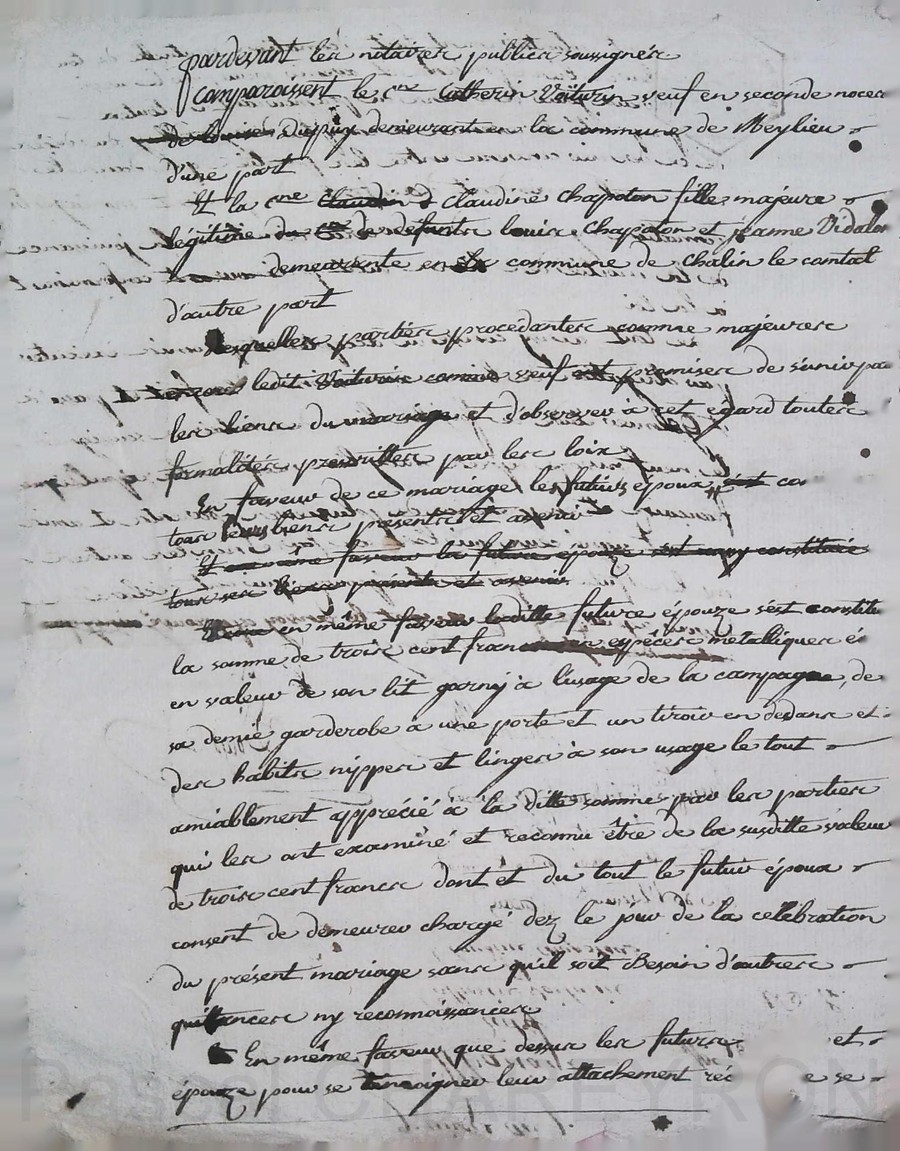 pardevant les notaires publics soussignés
Comparoissent le c.en Catherin Voiturin veuf en seconde noces
de Louise Dupuy demeurant en la commune de Meylieu
d'une part
Et la c.ne Claudine Chapoton fille majeure
légitime de défunts Louis Chapoton et jeanne Vidalon
demeurante en la commune de Chalin le comtal
d'autre part
Lesquelles parties procédantes comme majeures
ledit Voiturin comme veuf promises de s'unir pa
les liens du mariage et d'observer à cet égard toutes
formalités prescrittes par les loix
En faveur de ce mariage les futurs époux co
tous leurs biens présents et avenir
Et en même faveur la future épouze s'est constituée
tous ses biens présents et avenir
en même faveur laditte future épouze s'est constitu
la somme de trois cent francs en espèces métalliques
en valeur de son lit garny à l'usage de la campagne, de
sa demie garderobe à une porte et un tiroir en dedans et
des habits nippes et linges à son usage le tout
amiablement apprécié à la ditte somme par les parties
qui les ont examiné et reconnu être de la susditte valeur
de trois cent francs dont et du tout le futur époux
consent de demeurer chargé dez le jour de la célébration
du présent mariage sans qu'il soit Besoin d'autres
quittances ny reconnoissances
En même faveur que dessus les futurs et
épouze pour se témoigner leur attachement réc e se